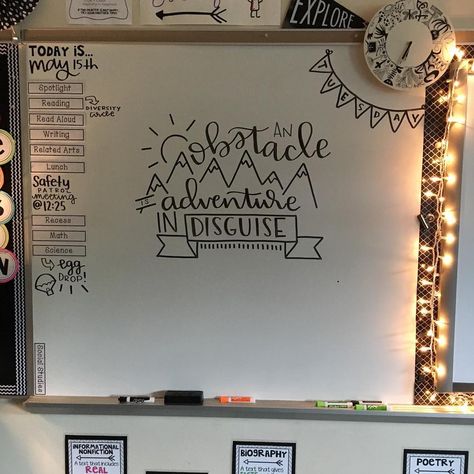 EXPLORE
TODAY IS...
may 15th
Spotlight
Reading
DIVERSITY
circle
Read Aloud
Writing
Related Arts
Lunch
Safety
PATROL
meeting
@ 12:25
Recess
Math
Science
egg
DROP!
Social Studies
TUESDAY
AN
obstacle
IS
adventure
IN DISGUISE
INFORMATIONAL
NONFICTION
A text that includes
REAL
BIOGRAPHY
A text that gives
POETRY